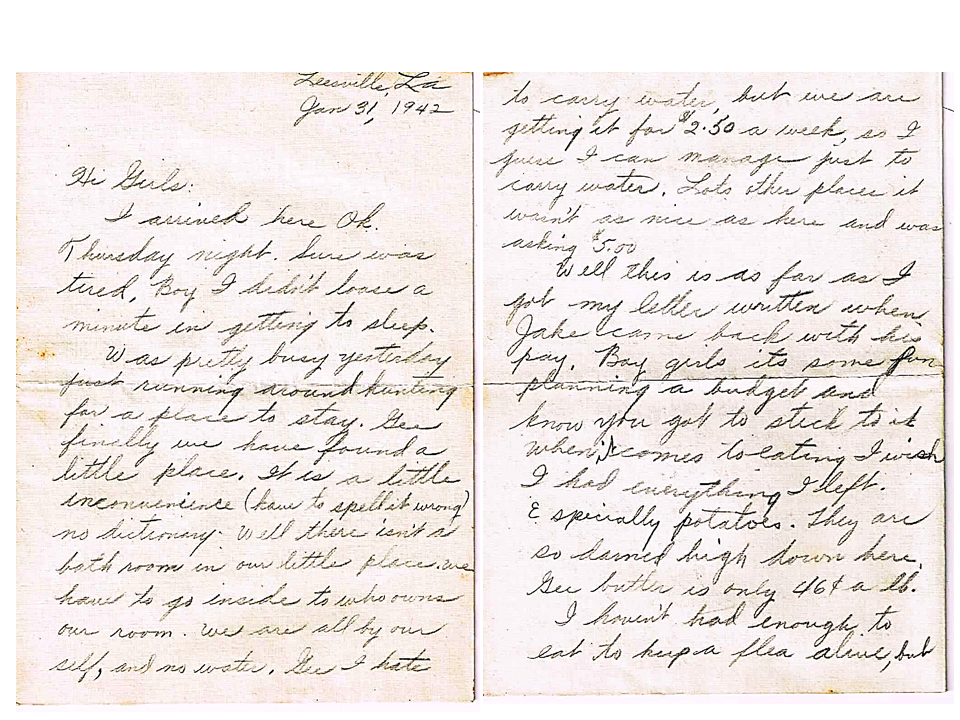 Leesville, La
Jan 31, 1942
Hi Girls:
I arrived here Ok.
Thursday night. Sure was
tired, Boy I didn't loose a
minute in getting to sleep.
Was pretty busy yesterday
just running around hunting
for a place to stay. Gee
finally we have found a
little place. It is a little
inconvenience (have to spell it wrong)
no dictionary. Well there isn't a
bath room in our little place. we
have to go inside to who owns
our room. We are all by our
self, and no water. Gee I hate
to carry water, but we are
getting it for $2.50 a week, so I
guess I can manage just to
carry water. Lots other places it
wasn't as nice as here and was
asking $5.00
Well this is as far as I
got my letter written when
Jake came back with his
pay. Boy girls its some fun
planning a budget and
know you got to stick to it
when it comes to eating I wish
I had everything I left.
Especially potatoes. They are
so darned high down here.
Gee butter is only 46¢ a lb.
I haven't had enough to
eat to keep a flea alive, but